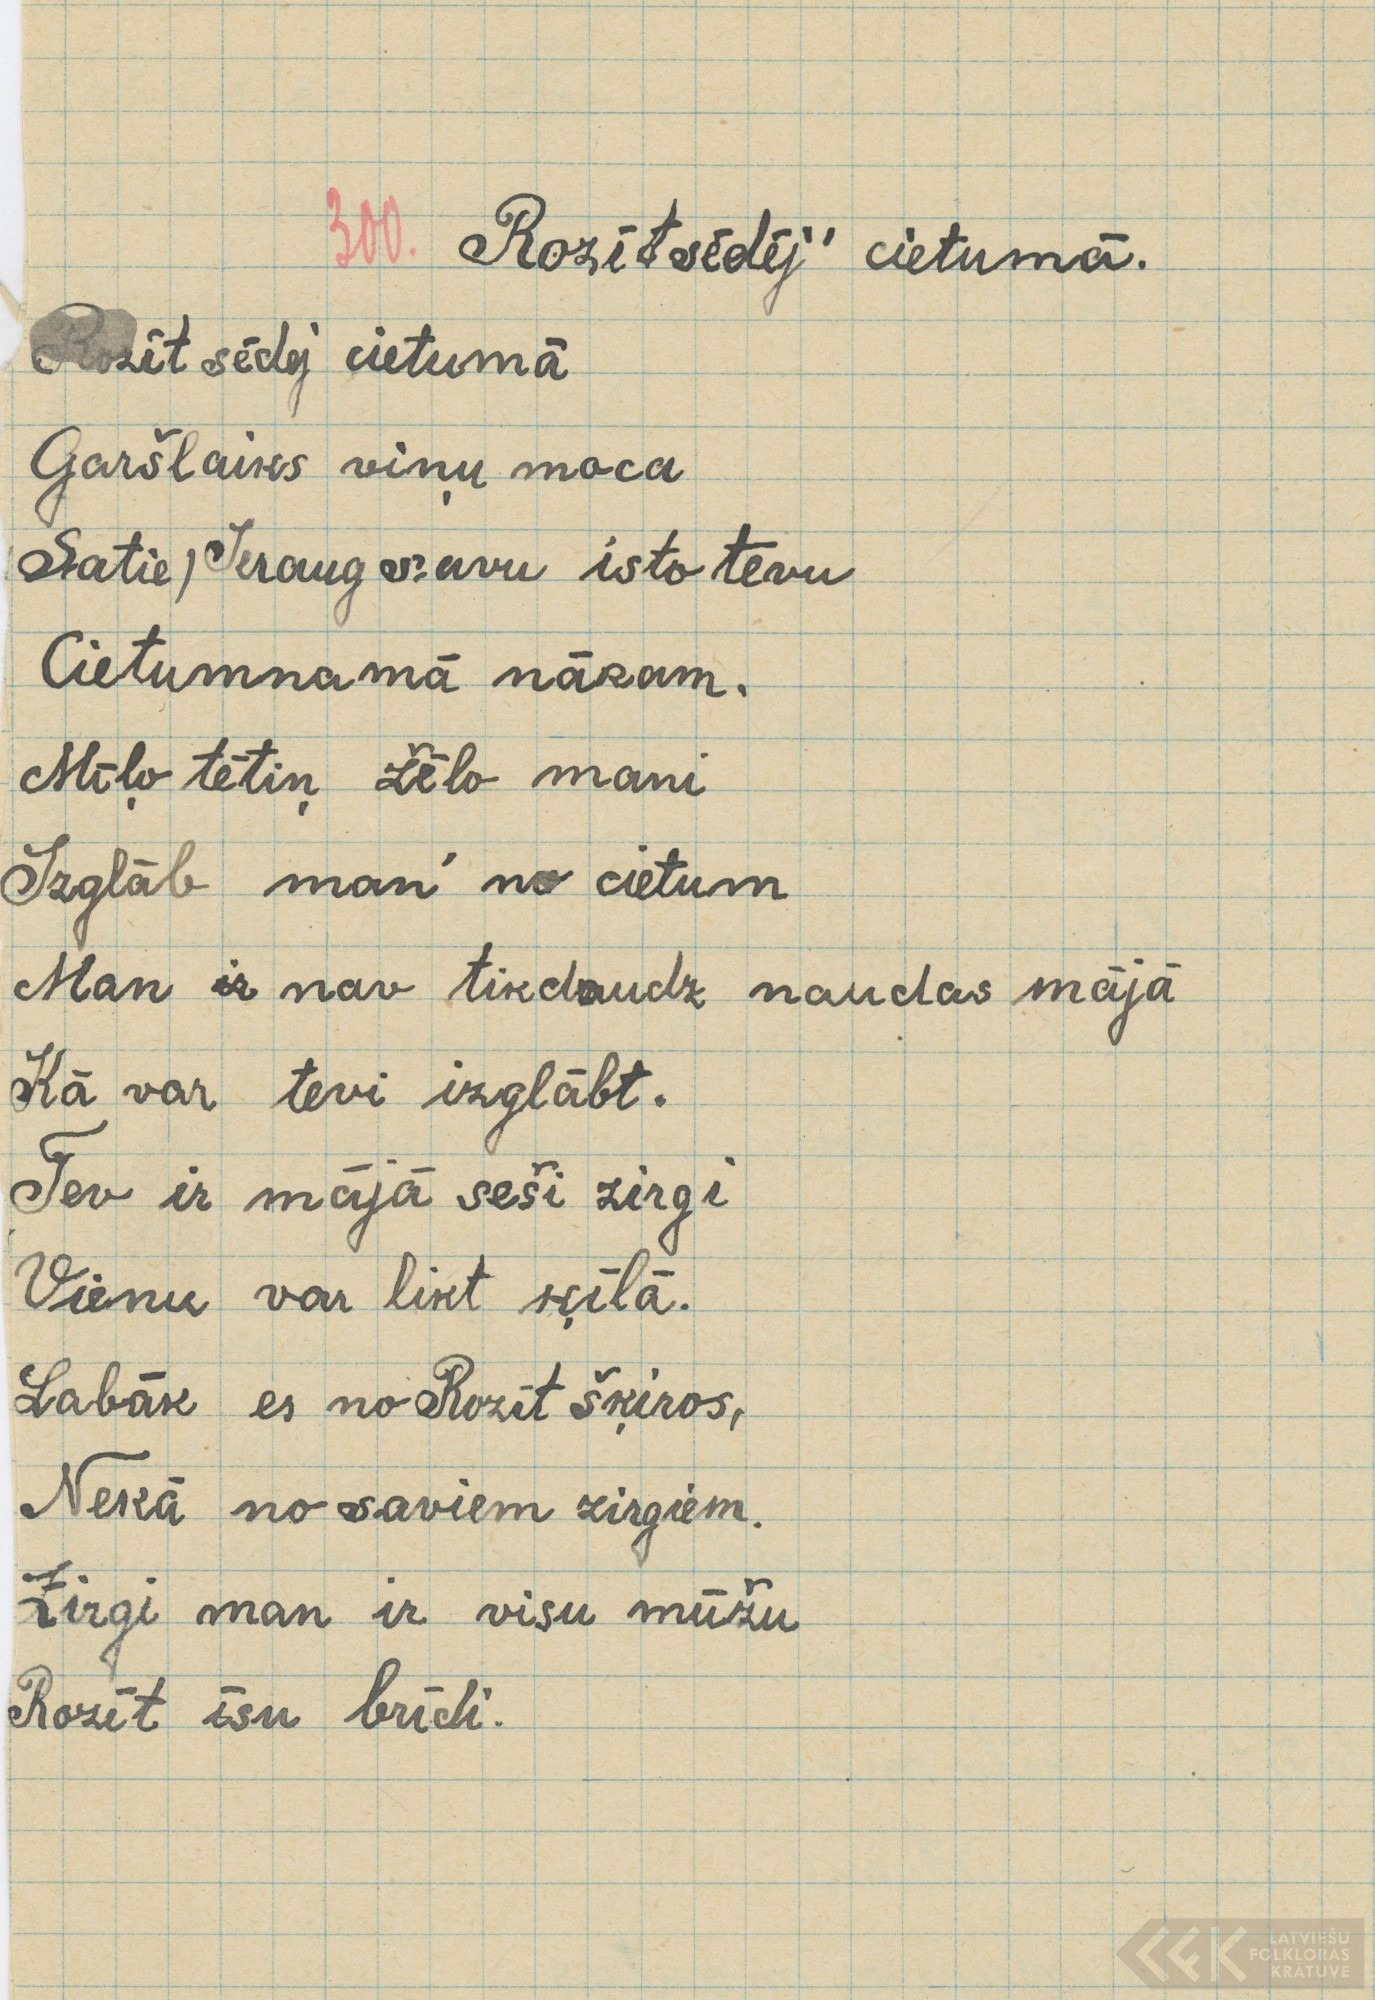 300. Rozīt sēdēj' cietumā.
Rozīt sēdej cietumā
Garšlaiks viņu moca
Satie) Ieraug savu isto tēvu
Cietumnamā nākam.
Mīļo tētiņ žēlo mani
Izglāb man' no cietum
Man ir nav tikdaudz naudas mājā
Kā var tevi izglābt.
Tev ir mājā seši zirgi
Vienu var likt ķīlā.
Labāk es no Rozīt šķiros,
Nekā no saviem zirgiem.
Zirgi man ir visu mūžu
Rozīt īsu brīdi.
LATVIEŠU
FOLKLORAS
KRĀTUVE